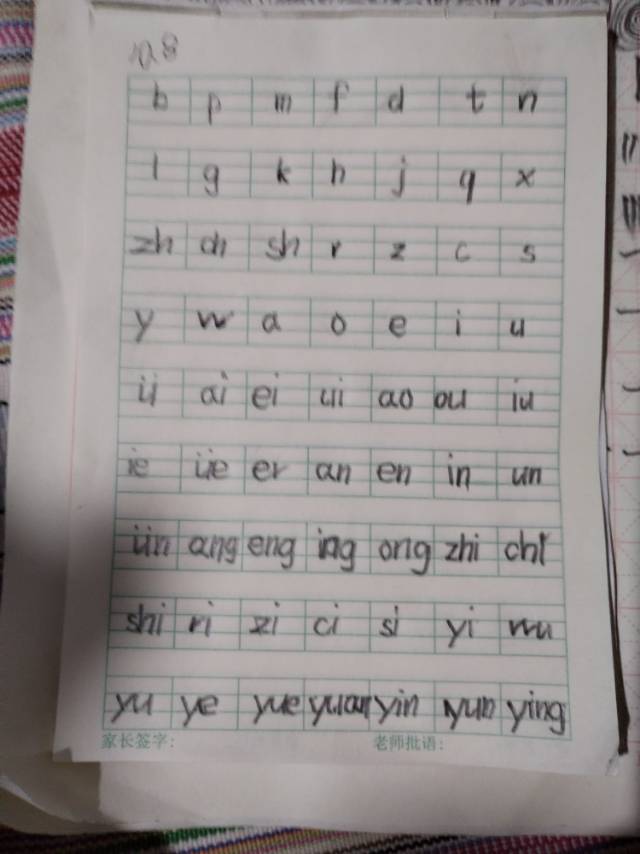 10.8
b p m f d t n
l g k h j q x
zh ch sh r z c s
y w a o e i u
ü ai ei ui ao ou iu
ie üe er an en in un
ün ang eng ing ong zhi chi
shi ri zi ci si yi wu
yu ye yue yuan yin yun ying
家长签字: 老师批语: